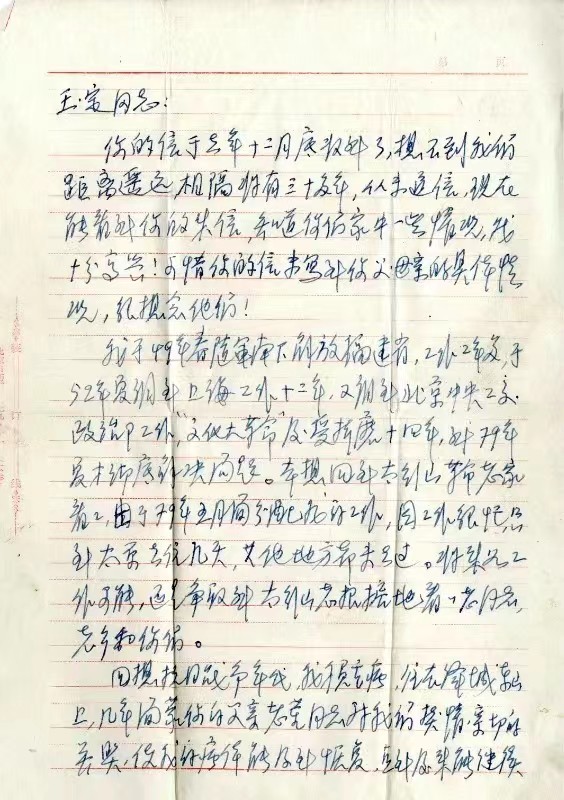 玉宝同志：
你的信于去年十二月底收到了，想不到我们
距离遥远，相隔将有三十多年，从未通信，现在
能看到你的来信，知道你们家中一些情况，我
十分高兴！可惜你的信未写到你父母亲的具体情
况，很想念他们！
我于49年春随军南下解放福建省，工作2年多，于
52年夏调到上海工作十二年，又调到北京中央工交
政治部工作，"文化大革命"及受折磨十四年，到79年
夏才彻底解决问题。本想回到太行山革命老家
看看，由于79年五月份分配我的工作，因工作很忙只
到太原去住几天，其他地方都未去过。将来如工
作可能，还是争取到太行山老根据地看一老同志，
老乡和你们。
回想抗日战争年代，我损去病，住在 城 山
上，几年间蒙你的父亲 同志对我们热情亲切的
关照，使我的病体能及时恢复，及 能继续